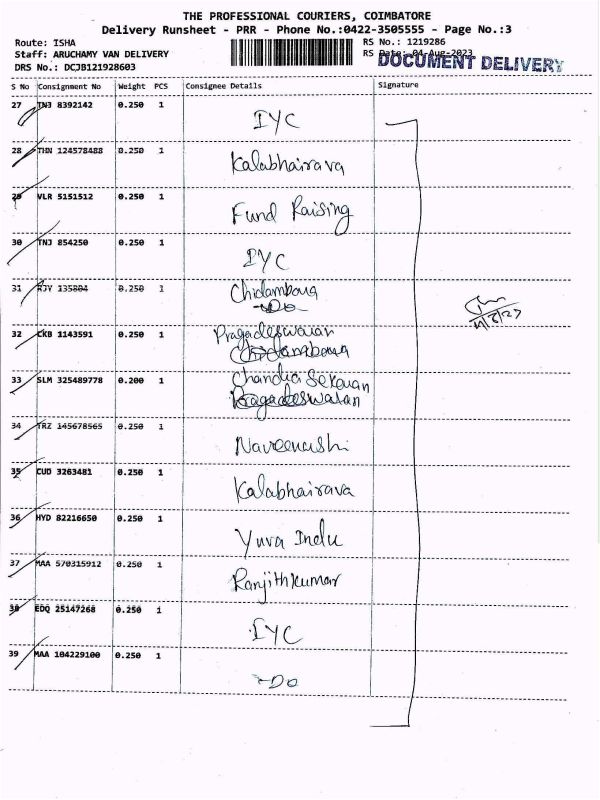 THE PROFESSIONAL COURIERS, COIMBATORE
Delivery Runsheet - PRR - Phone No.:0422-3505555 - Page No.:3
Route: ISHA
RS No.: 1219286
Staff: ARUCHAMY VAN DELIVERY
RS Date: 04-Aug-2023
DOCUMENT DELIVERY
DRS No.: DCJB121928603
S No Consignment No Weight PCS Consignee Details Signature
27 TNJ 8392142 0.250 1
IYC
28 THN 124578488 0.250 1
Kalabhairava
29 VLR 5151512 0.250 1
Fund Raising
30 TNJ 854250 0.250 1
IYC
31 RJY 135804 0.250 1
Chidambara
-Do
32 CKB 1143591 0.250 1
Pragadeswaran
Chidambara
33 SLM 325489778 0.200 1
Chandra Sekaran
Pragadeswaran
34 TRZ 145678565 0.250 1
Naveenashi
35 CUD 3263481 0.250 1
Kalabhairava
36 HYD 82216650 0.250 1
Yuva Indu
37 MAA 570315912 0.250 1
Ranjithkumar
38 EDQ 25147268 0.250 1
IYC
39 MAA 104229100 0.250 1
-Do